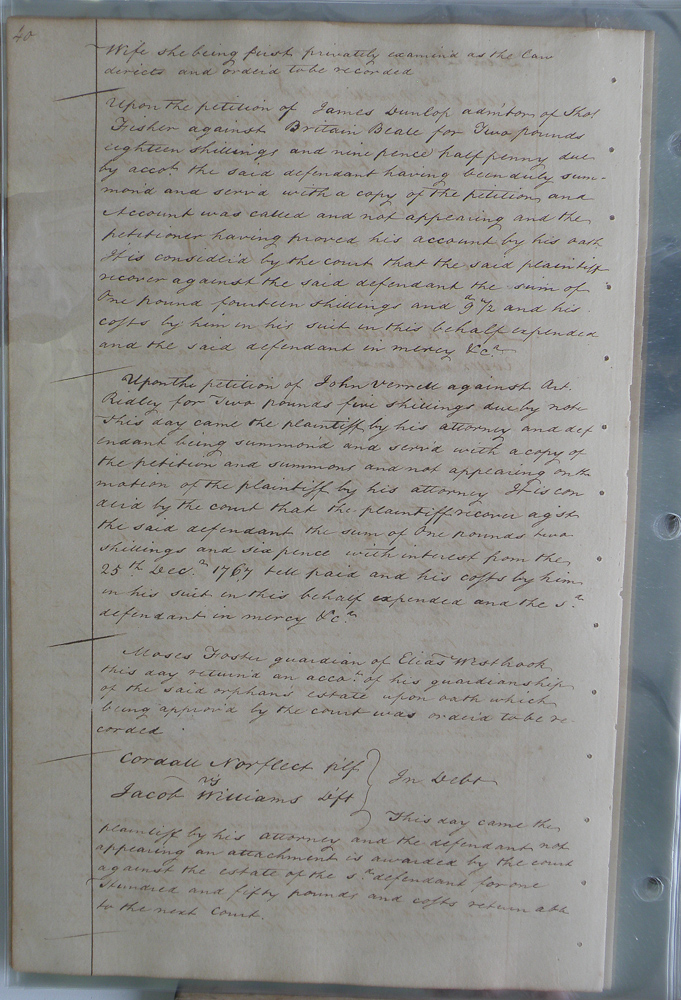 40
Wife she being first privately examind as the Law
directs and orderd to be recorded
Upon the petition of James Dunlop admitor of Thos
Fisher against Britain Beale for Two pounds
eighteen shillings and nine pence half penny due
by accot. the said defendant having been duly sum-
mond and servd with a copy of the petition and
Account was called and not appearing and the
petitioner having proved his account by his oath
It is considerd by the court that the said plaintiff
recover against the said defendant the sum of
One pound fourteen shillings and 9 1/2 and his
costs by him in his suit in this behalf expended
and the said defendant in mercy &ca
Upon the petition of John Verrell against Art.
Ridley for Two pounds five shillings due by note
This day came the plaintiff by his attorney and def
endant being summond and servd with a copy of
the petition and summons and not appearing on th
motion of the plaintiff by his attorney It is con
derd by the court that the plaintiff recover agst
the said defendant the sum of One pounds two
shillings and six pence with interest from the
25th Decr 1767 till paid and his costs by him
in his suit in this behalf expended and the sd
defendant in mercy &ca
Moses Foster guardian of Elias Westbrook
this day returnd an accot. of his guardianship
of the said orphans estate upon oath which
being approvd by the court was orderd to be re
corded
Cordall Norflect Plf
vs
In Debt
Jacob Williams Dft
This day came the
plaintiff by his attorney and the defendant not
appearing an attachment is awarded by the court
against the estate of the sd defendant for one
Hundred and fifty pounds and costs return able
to the next Court.